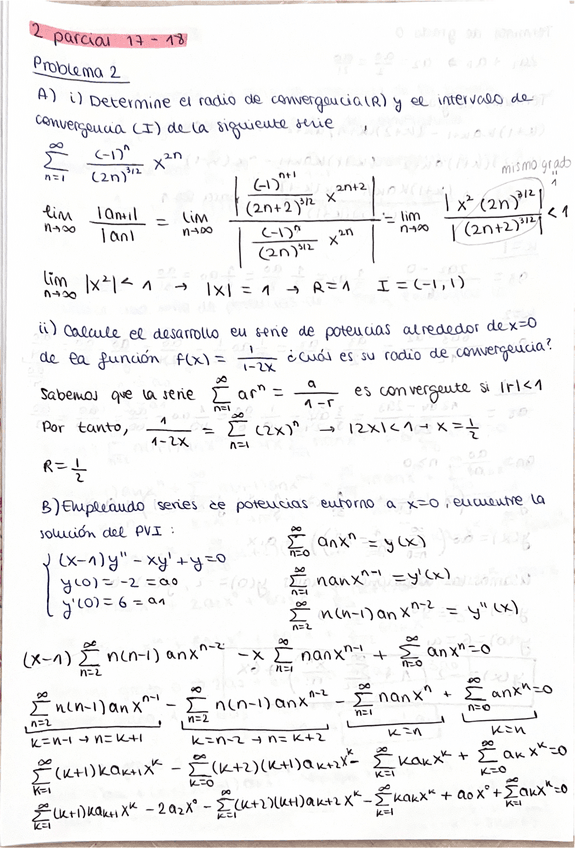 2 parcial 17-18
Problema 2
A) i) Determine el radio de convergencia (R) y el intervalo de
convergencia (I) de la siguiente serie
∑_{n=1}^{∞} (-1)^n / (2n)^{3/2} x^{2n}
mismo grado
lim_{n→∞} |an+1| / |an| = lim_{n→∞} |(-1)^{n+1} / (2n+2)^{3/2} x^{2n+2}| / |(-1)^n / (2n)^{3/2} x^{2n}| = lim_{n→∞} |x^2 (2n)^{3/2}| / |(2n+2)^{3/2}| < 1
lim_{n→∞} |x^2| < 1 → |x| = 1 → R=1 I = (-1, 1)
ii) Calcule el desarrollo en serie de potencias alrededor de x=0
de la función f(x) = 1/(1-2x) ¿cuál es su radio de convergencia?
Sabemos que la serie ∑_{n=1}^{∞} ar^n = a/(1-r) es convergente si |r|<1
Por tanto, 1/(1-2x) = ∑_{n=1}^{∞} (2x)^n → |2x|<1 → x = 1/2
R = 1/2
B) Empleando series de potencias entorno a x=0, encuentre la
solución del PVI:
(x-1)y'' - xy' + y = 0
y(0) = -2 = a0
y'(0) = 6 = a1
∑_{n=0}^{∞} anx^n = y(x)
∑_{n=1}^{∞} nanx^{n-1} = y'(x)
∑_{n=2}^{∞} n(n-1) an x^{n-2} = y''(x)
(x-1) ∑_{n=2}^{∞} n(n-1) anx^{n-2} - x ∑_{n=1}^{∞} nanx^{n-1} + ∑_{n=0}^{∞} anx^n = 0
∑_{n=2}^{∞} n(n-1) an x^{n-1} - ∑_{n=2}^{∞} n(n-1) an x^{n-2} - ∑_{n=1}^{∞} nanx^n + ∑_{n=0}^{∞} anx^n = 0
k=n-1 → n=k+1 k=n-2 → n=k+2 k=n k=n
∑_{k=1}^{∞} (k+1)k a_{k+1} x^k - ∑_{k=0}^{∞} (k+2)(k+1) a_{k+2} x^k - ∑_{k=1}^{∞} kakx^k + ∑_{k=0}^{∞} ak x^k = 0
∑_{k=1}^{∞} (k+1)k a_{k+1} x^k - 2a2x^0 - ∑_{k=1}^{∞} (k+2)(k+1) a_{k+2} x^k - ∑_{k=1}^{∞} kakx^k + a0x^0 + ∑_{k=1}^{∞} akx^k = 0